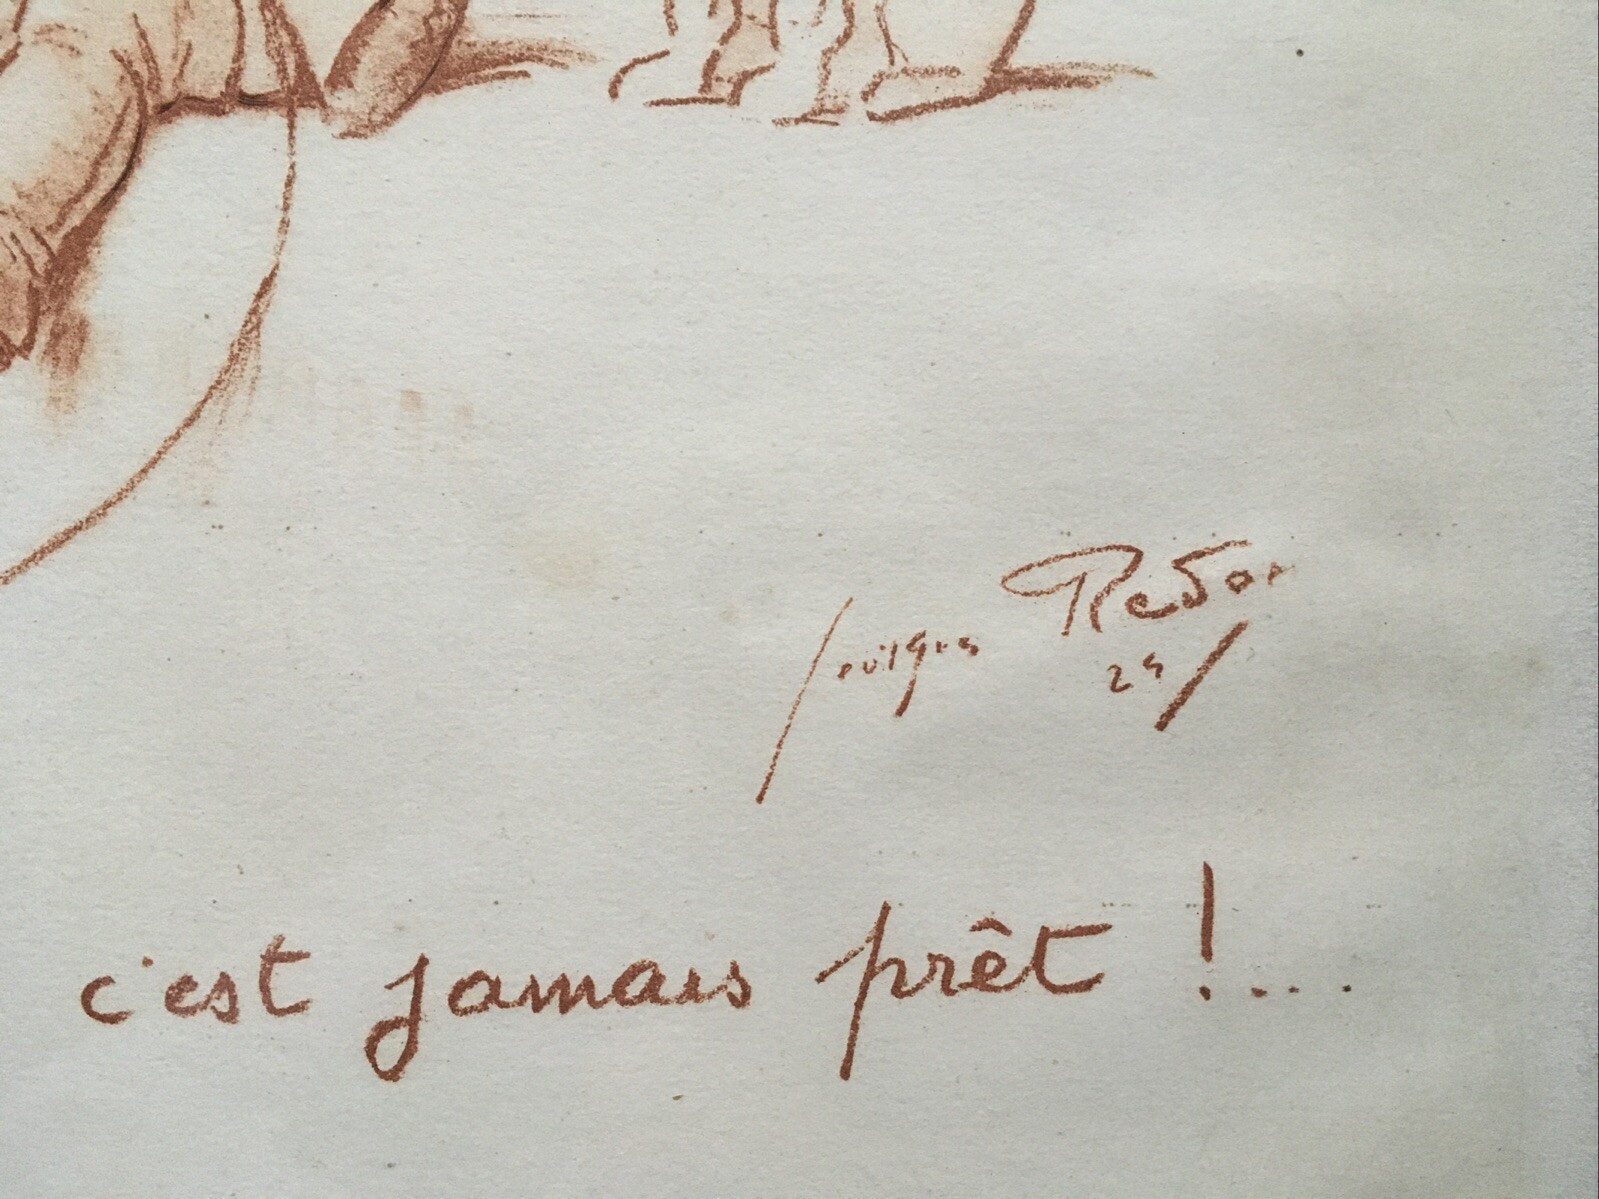 Georges Redon
25
c'est jamais prêt !...